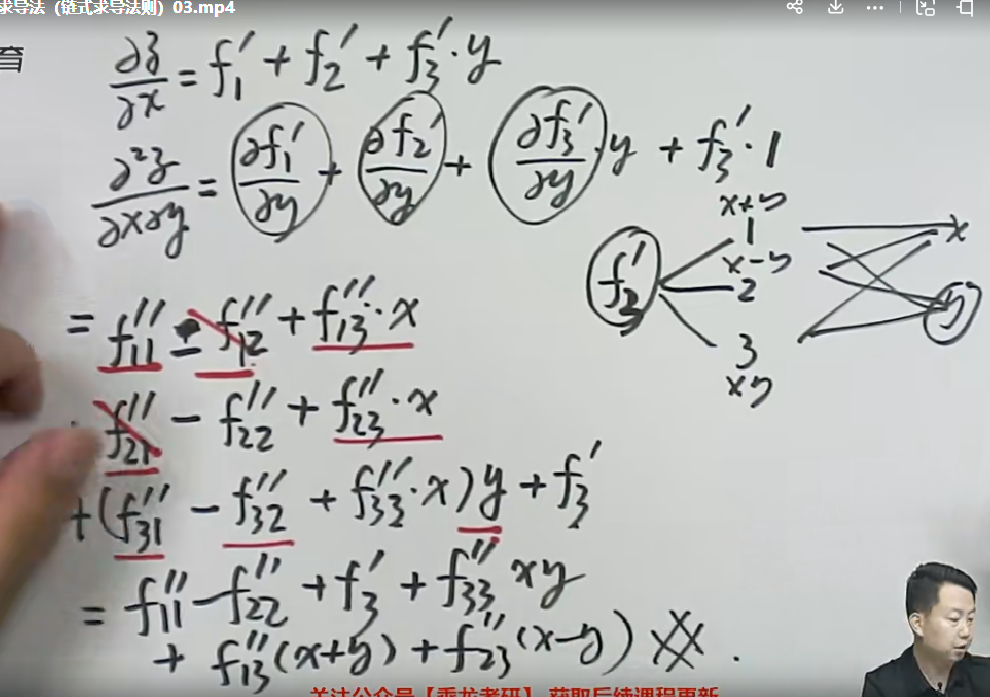 求导法（链式求导法则）03.mp4
育
∂z/∂x = f₁′ + f₂′ + f₃′·y
∂²z/∂x∂y = ∂f₁′/∂y + ∂f₂′/∂y + ∂f₃′/∂y·y + f₃′·1
x+y
1 x
x-y
f₂′ 2 y
3
xy
= f₁₁″ - f₁₂″ + f₁₃″·x
+ f₂₁″ - f₂₂″ + f₂₃″·x
+(f₃₁″ - f₃₂″ + f₃₃″·x)y + f₃′
= f₁₁″ - f₂₂″ + f₃′ + f₃₃″xy
+ f₁₃″(x+y) + f₂₃″(x-y)
关注公众号【乘龙考研】获取后续课程更新